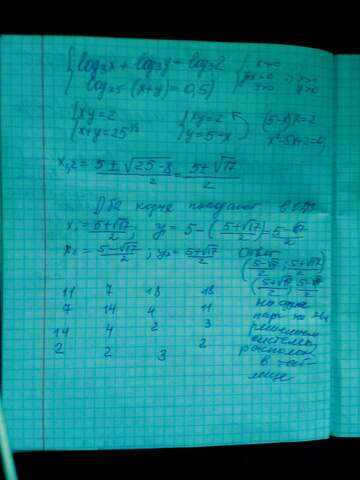 { log₃x + log₃y = log₃2
log₂₅(x+y) = 0,5 } { x>0
y>0
{ xy=2
x+y=25^1/2 { xy=2
y=5-x (5-x)x=2
x²-5x+2=0,
x₁,₂ = 5±√25-8 / 2 = 5±√17 / 2
Два корня попадают в
x₁ = 5+√17 / 2 ; y₁ = 5 - (5+√17 / 2) = 5-√17 / 2
x₂ = 5-√17 / 2 ; y₂ = 5+√17 / 2 Ответ
(5-√17 / 2 ; 5+√17 / 2)
(5+√17 / 2 ; 5-√17 / 2)
11 7 18 18
7 14 4 11
14 4 2 3
2 2 3 2
ни одна
пара не
решением
системы
располож
в таб-
лице